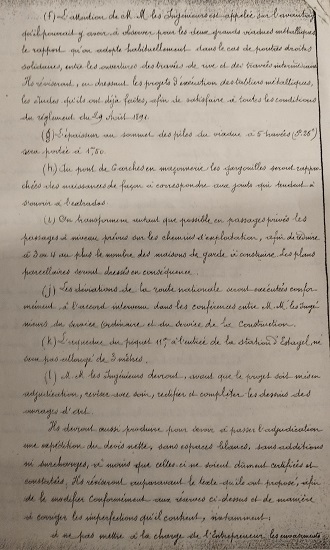 (f) L'attention de M.M. les Ingénieurs est appelée sur l'avantage
qu'il pourrait y avoir à observer pour les deux grands viaducs métalliques
le rapport qu'on adopte habituellement dans le cas de poutres droites
solidaires, entre les ouvertures des travées de rive et des travées intermédiaires.
Ils réviseront, en dressant les projets d'exécution des tabliers métalliques,
les études qu'ils ont déjà faites, afin de satisfaire à toutes les conditions
du règlement du 29 Août 1891.
(g) L'épaisseur au sommet des piles du viaduc à 5 travées
sera portée à 1m,50.
(h) Au pont de Garches en maçonnerie les gargouilles seront rappro-
chées des naissances de façon à correspondre aux joints qui tendent à
s'ouvrir à l'extrados.
(i) On transformera autant que possible en passages privés les
passages à niveau prévus sur les chemins d'exploitation, afin de réduire
à 3 ou 4 au plus le nombre des maisons de garde à construire. Les plans
parcellaires seront dressés en conséquence.
(j) Les déviations de la route nationale seront exécutées confor-
mément à l'accord intervenu dans les conférences entre M.M. les Ingé-
nieurs du service ordinaire et du service de la Construction.
(k) L'aqueduc du piquet 117 à l'entrée de la station d'Estagel, ne
sera pas allongé de 3 mètres.
(l) M.M. les Ingénieurs devront, avant que le projet soit mis en
adjudication, reviser avec soin, rectifier et compléter les dessins des
ouvrages d'art.
Ils devront aussi produire pour servir à passer l'adjudication
une expédition du devis nette, sans espaces blancs, sans additions
ni surcharges, à moins que celles-ci ne soient dûment certifiées et
constatées. Ils réviseront auparavant le texte qu'ils ont proposé, afin
de le modifier conformément aux réserves ci-dessus et de manière
à corriger les imperfections qu'il contient, notamment:
à ne pas mettre à la charge de l'Entrepreneur les